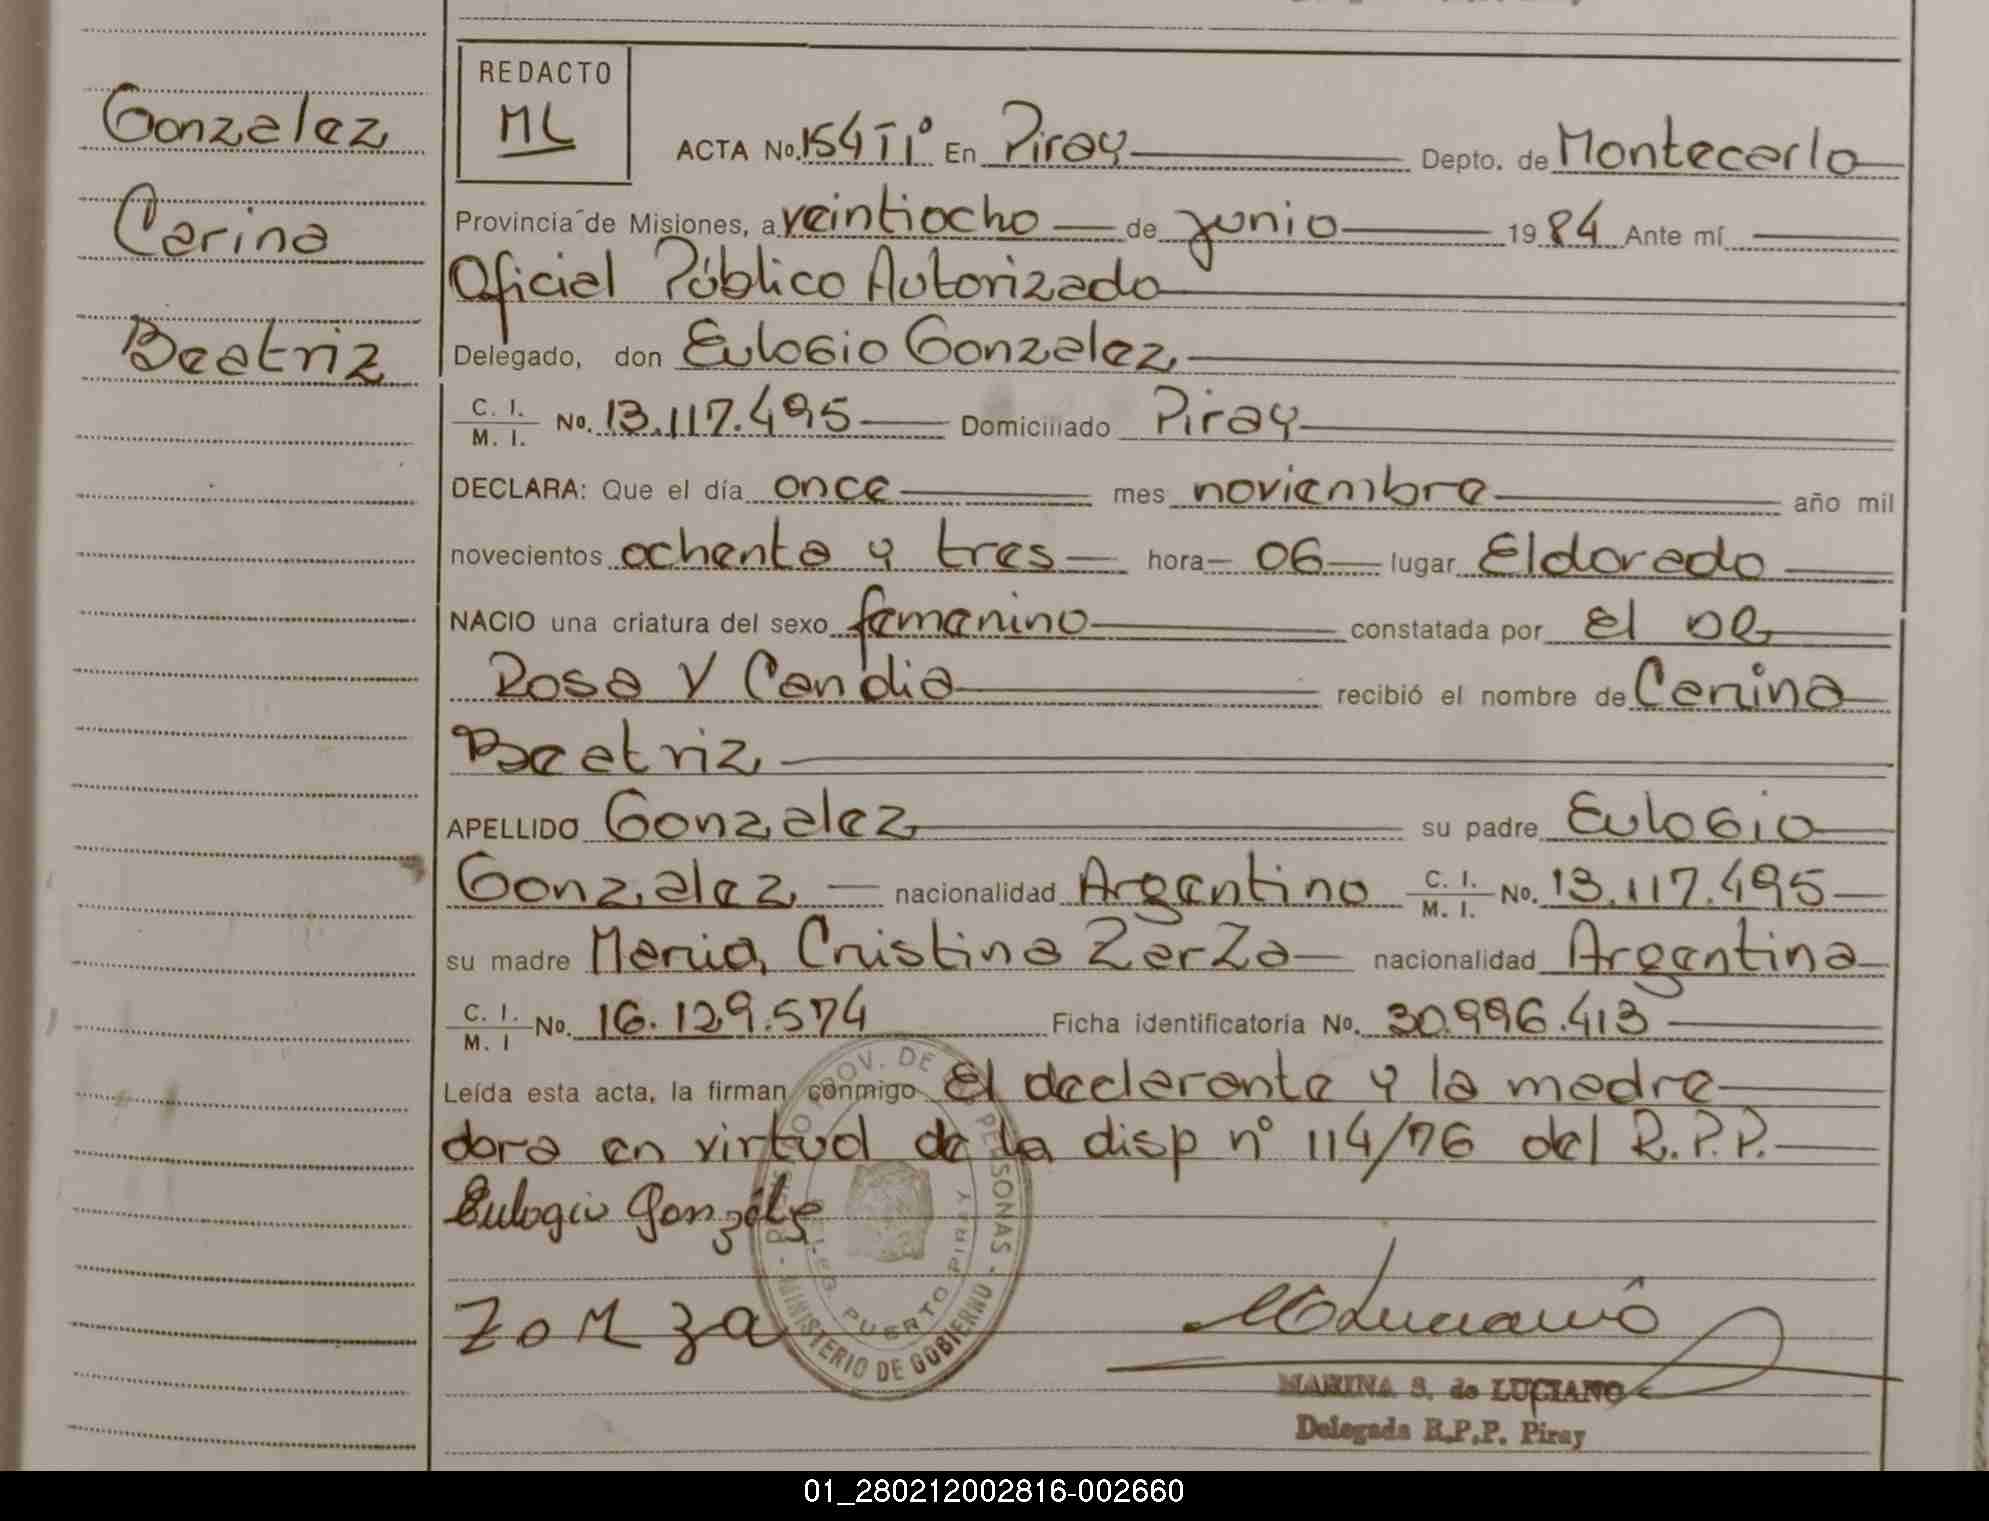 Gonzalez
Carina
Beatriz
REDACTO
ML
ACTA No. 154 TIº En Piray Depto. de Montecarlo
Provincia de Misiones, a veintiocho de junio 1984 Ante mí
Oficial Público Autorizado
Delegado, don Eulogio Gonzalez
C. I. / M. I. No. 13.117.495 Domiciliado Piray
DECLARA: Que el día once mes noviembre año mil
novecientos ochenta y tres hora 06 lugar Eldorado
NACIO una criatura del sexo femenino constatada por el DR
Rosa V Candia recibió el nombre de Carina
Beatriz
APELLIDO Gonzalez su padre Eulogio
Gonzalez nacionalidad Argentino C. I. / M. I. No. 13.117.495
su madre Maria Cristina Zarza nacionalidad Argentina
C. I. / M. I No. 16.129.574 Ficha identificatoria No. 30.996.413
Leída esta acta, la firman conmigo el declarante y la madre
dora en virtud de la disp nº 114/76 del R.P.P.
Eulogio González
ZoRza
PROV. DE PERSONAS - MINISTERIO DE GOBIERNO
PUERTO PIRAY
MARINA S. de LUCIANO
Delegada R.P.P. Piray
01_280212002816-002660